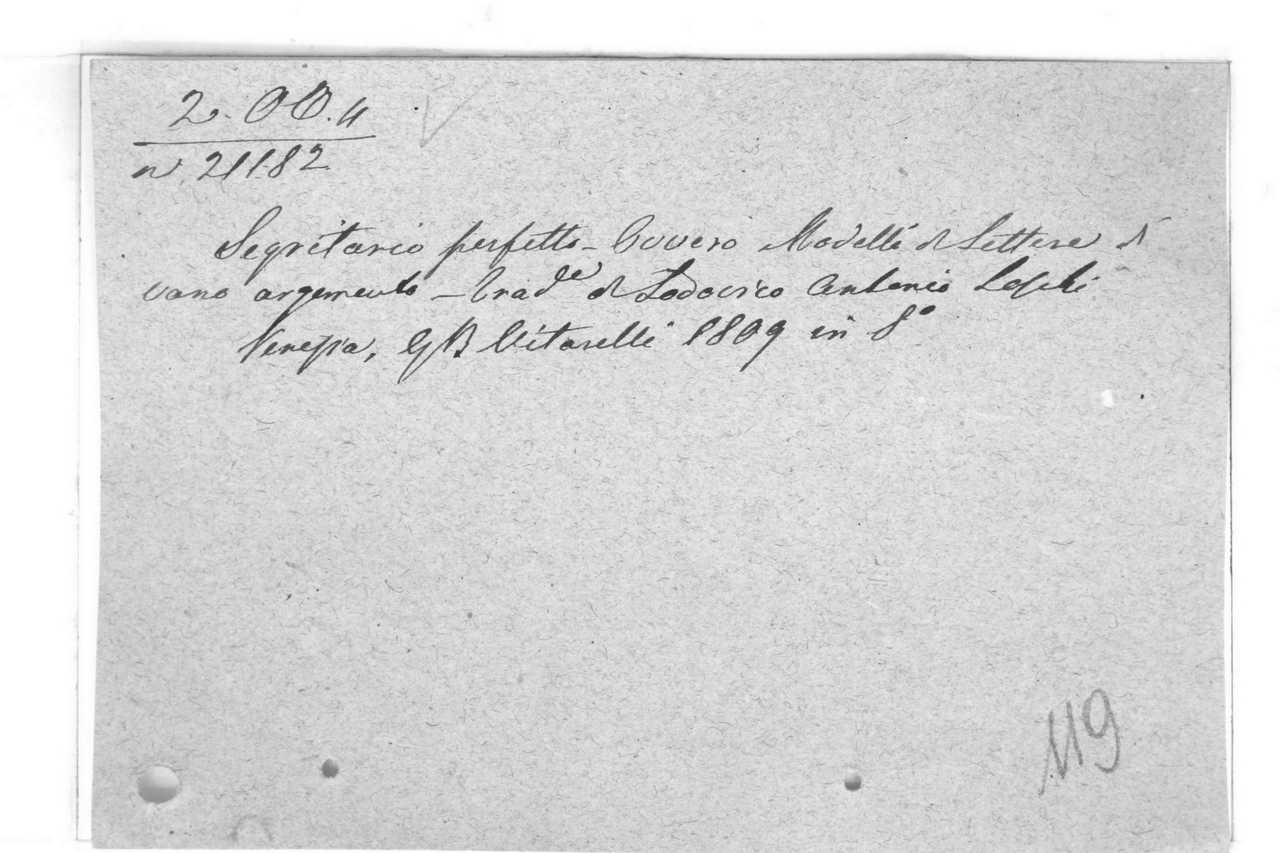 2. OB. 4
n 21182
Segritario perfetto - Ovvero Modelli di Lettere di
vario argemento - Trad.e di Lodovico Antonio Loschi
Venezia, GB Vitarelli 1809 in 8°
119